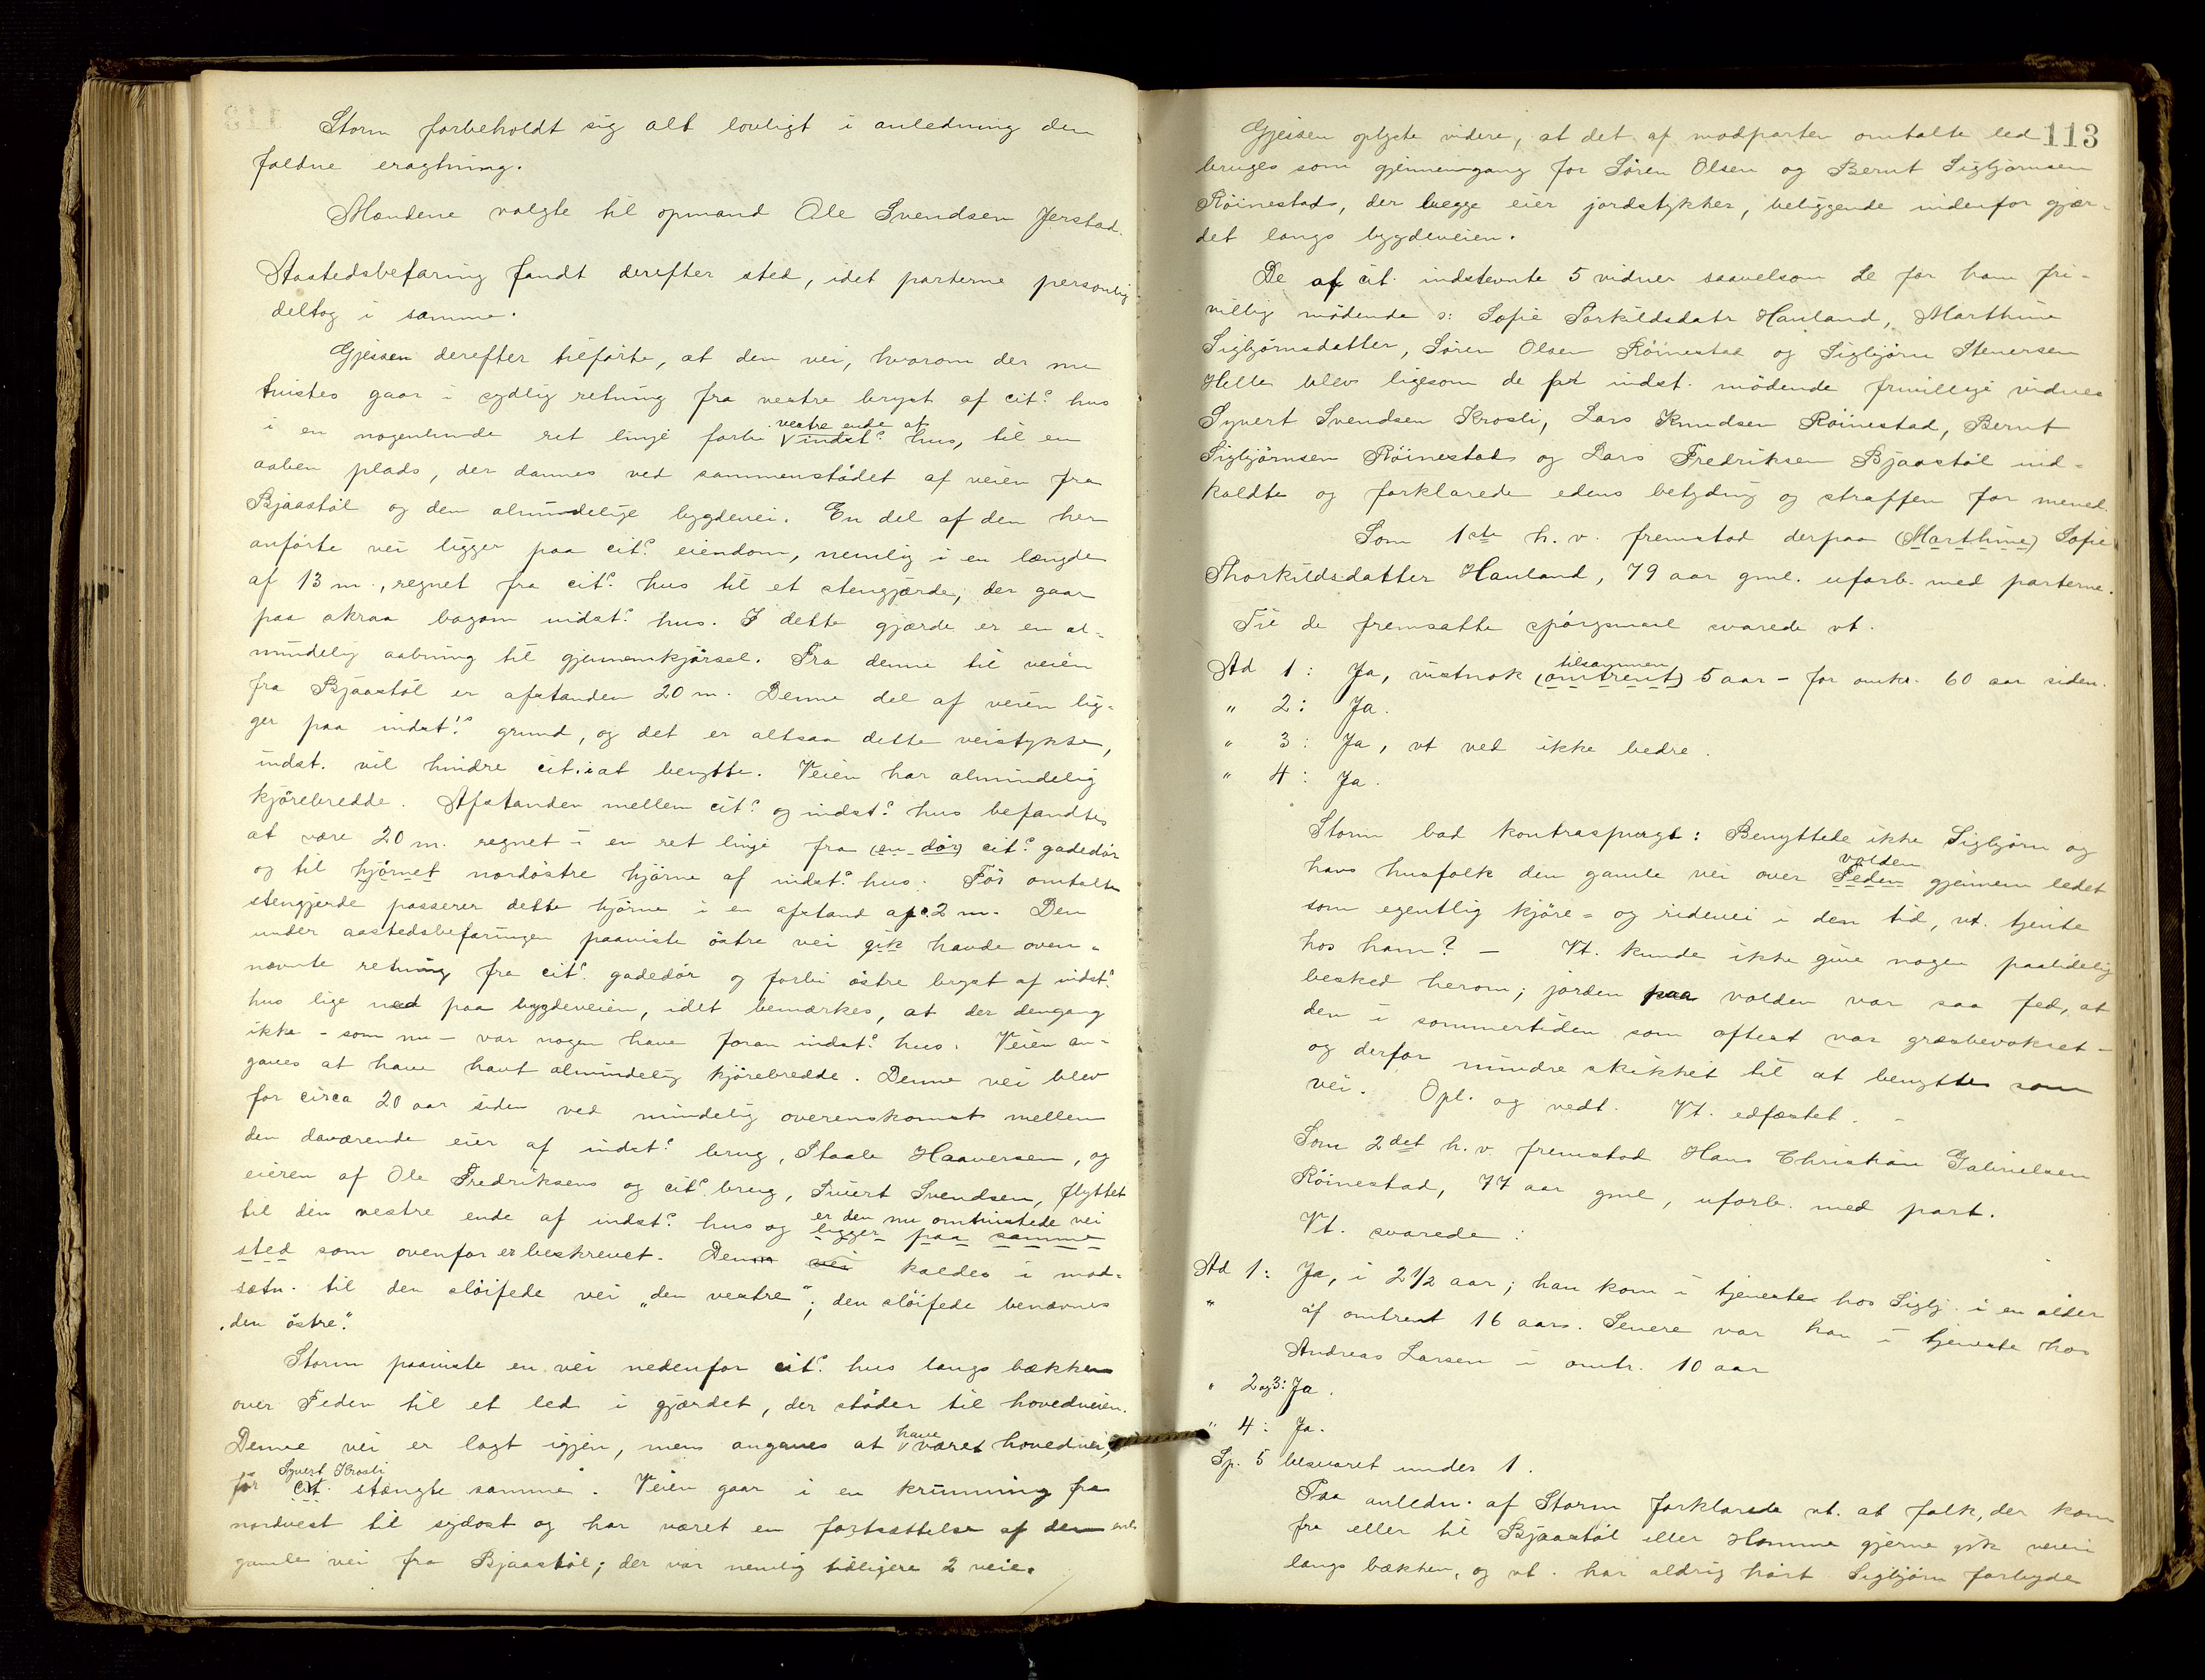 Storm forbeholdt sig alt lovligt i anledning den
faldne eragtning.
Mændene valgte til opmand Ole Svendsen Jerstad.
Aastedsbefaring fandt derefter sted, idet parterne personlig
deltog i samme.
Gjessen derefter tilførte, at den vei, hvorom der nu
tvistes gaar i sydlig retning fra vestre bryst af cits hus
vestre ende af
i en nogenlunde ret linje forbi indsts hus, til en
aaben plads, der dannes ved sammenstødet af veien fra
Bjaastøl og den almindelige bygdevei. En del af den her
anførte vei ligger paa cits eiendom, nemlig i en længde
af 13 m., regnet fra cits hus til et stengjærde, der gaar
paa skraa bagom indsts hus. I dette gjærde er en al-
mindelig aabning til gjennemkjørsel. Fra denne til veien
fra Bjaastøl er afstanden 20 m. Denne del af veien lig-
ger paa indsts grund, og det er altsaa dette veistykke,
indst. vil hindre cit. i at benytte. Veien har almindelig
kjørebredde. Afstanden mellem cits og indsts hus befandtes
at være 20 m. regnet i en ret linje fra (en dør) cits gadedør
og til hjørnet nordøstre hjørne af indsts hus. Før omtalte
stengjerde passerer dette hjørne i en afstand af c. 2 m. Den
under aastedsbefaringen paaviste østre vei gik havde oven-
nævnte retning fra cits gadedør og forbi østre bryst af indsts
hus lige ned paa bygdeveien, idet bemærkes, at der dengang
ikke - som nu - var nogen have foran indsts hus. Veien an-
gaves at have havt almindelig kjørebredde. Denne vei blev
for circa 20 aar siden ved mindelig overenskomst mellem
den daværende eier af indsts brug, Staale Haaversen, og
eieren af Ole Fredriksens og cits brug, Sivert Svendsen, flyttet
er den nu omtvistede vei
til den vestre ende af indsts hus og ligger paa samme
sted som ovenfor er beskrevet. Denne vei kaldes i mod-
sætn. til den sløifede vei "den vestre"; den sløifede benævnes
"den østre".
Storm paaviste en vei nedenfor cits hus langs bækken
over Feden til et led i gjærdet, der støder til hovedveien.
have
Denne vei er lagt igjen, mens angaves at været hovedvei,
Syvert Krosli
før cit. stængte samme. Veien gaar i en krumning fra
nordvest til sydost og har været en fortsættelse af den
gamle vei fra Bjaastøl; der var nemlig tidligere 2 veie.
113
Gjessen oplyste videre, at det af modparten omtalte led
bruges som gjennemgang for Søren Olsen og Bernt Sigbjørnsen
Røinestad, der begge eier jordstykker, beliggende indenfor gjær-
det langs bygdeveien.
De af cit. indstevnte 5 vidner saavelsom de for ham fri-
villig mødende o: Sofie Torkildsdatr Hauland, Marthine
Sigbjørnsdatter, Søren Olsen Røinestad og Sigbjørn Stenersen
Helle blev ligesom de for indst. mødende frivillige vidner
Syvert Svendsen Krosli, Lars Knudsen Røinestad, Bernt
Sigbjørnsen Røinestad og Lars Fredriksen Bjaastøl ind-
kaldte og forklarede edens betydning og straffen for mened.
Som 1ste h. v. fremstod derpaa (Marthine) Sofie
Thorkildsdatter Hauland, 79 aar gml. ubesl. med parterne.
Til de fremsatte spørgsmaal svarede vt.
tilsammen
Ad 1: Ja, vistnok (omtrent) 5 aar - for omkr. 60 aar siden.
" 2: Ja.
" 3: Ja, vt ved ikke bedre.
" 4: Ja.
Storm bad kontraspurgt: Benyttede ikke Sigbjørn og
volden
hans husfolk den gamle vei over Feden gjennem ledet
som egentlig kjøre- og ridevei i den tid, vt. tjente
hos ham? - Vt. kunde ikke give nogen paalidelig
besked herom; jorden paa volden var saa fed, at
den i sommertiden som oftest var græsbevokset -
og derfor mindre skikket til at benyttes som
vei. Opl. og vedt. Vt. edfæstet. -
Som 2det h. v. fremstod Hans Christian Gabrielsen
Røinestad, 77 aar gml, uforb. med part.
Vt. svarede:
Ad 1: Ja, i 2 1/2 aar; han kom i tjeneste hos Sigbj. i en alder
" af omtrent 16 aar. Senere var han i tjeneste hos
Andreas Larsen i omtr. 10 aar
" 2 og 3: Ja.
" 4: Ja.
Sp. 5 besvaret under 1.
Paa anledn. af Storm forklarede vt. at folk, der kom
fra eller til Bjaastøl eller Homme gjerne gik veien
langs bækken, og vt. har aldrig hørt Sigbjørn forbyde